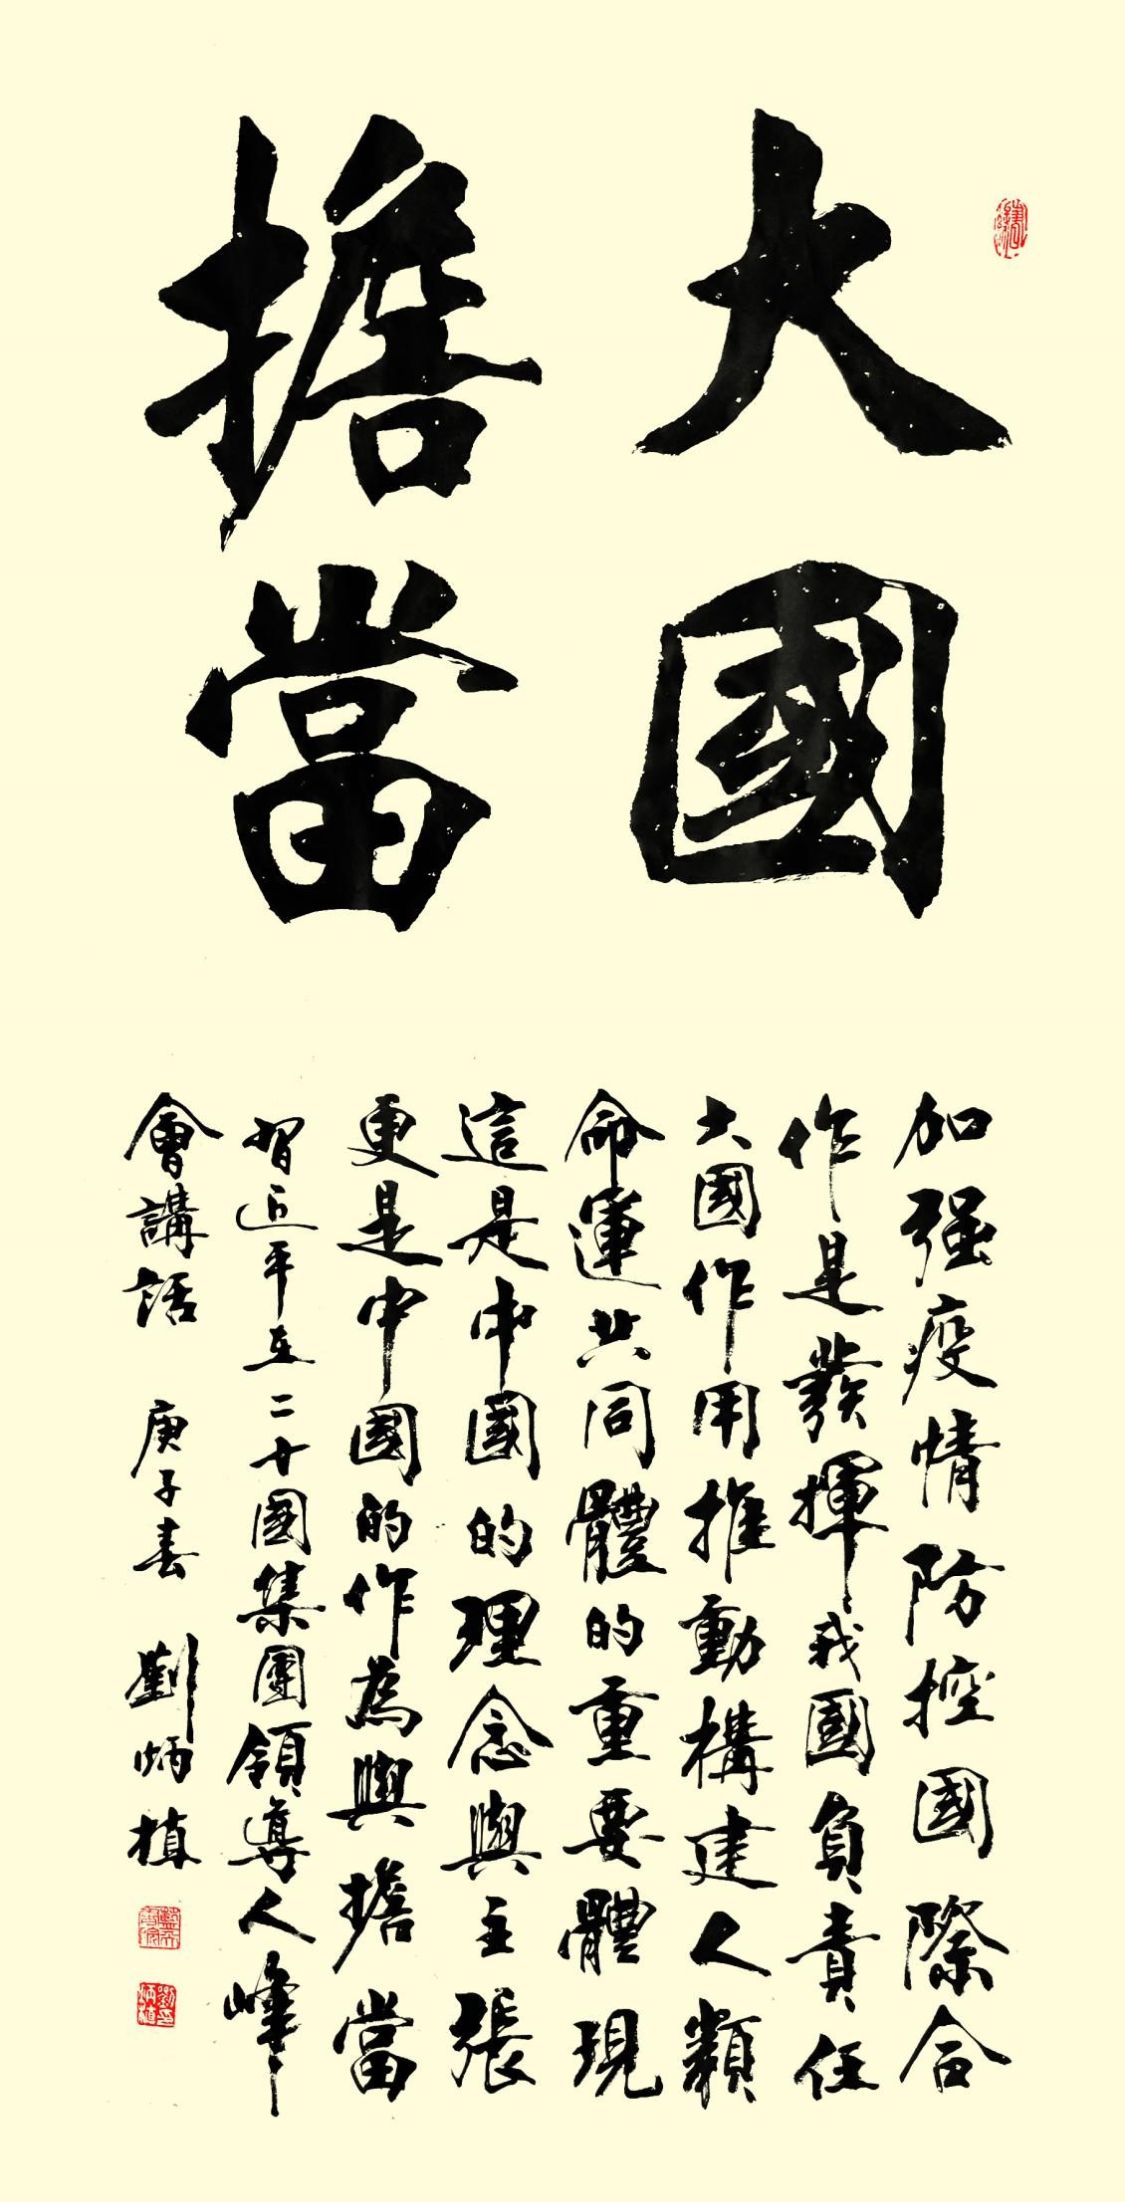 大國
擔當
加强疫情防控國際合
作是發揮我國負責任
大國作用推動構建人類
命運共同體的重要體現
這是中國的理念與主張
更是中國的作為與擔當
習近平在二十國集團領導人峰
會講話 庚子春 劉炳植